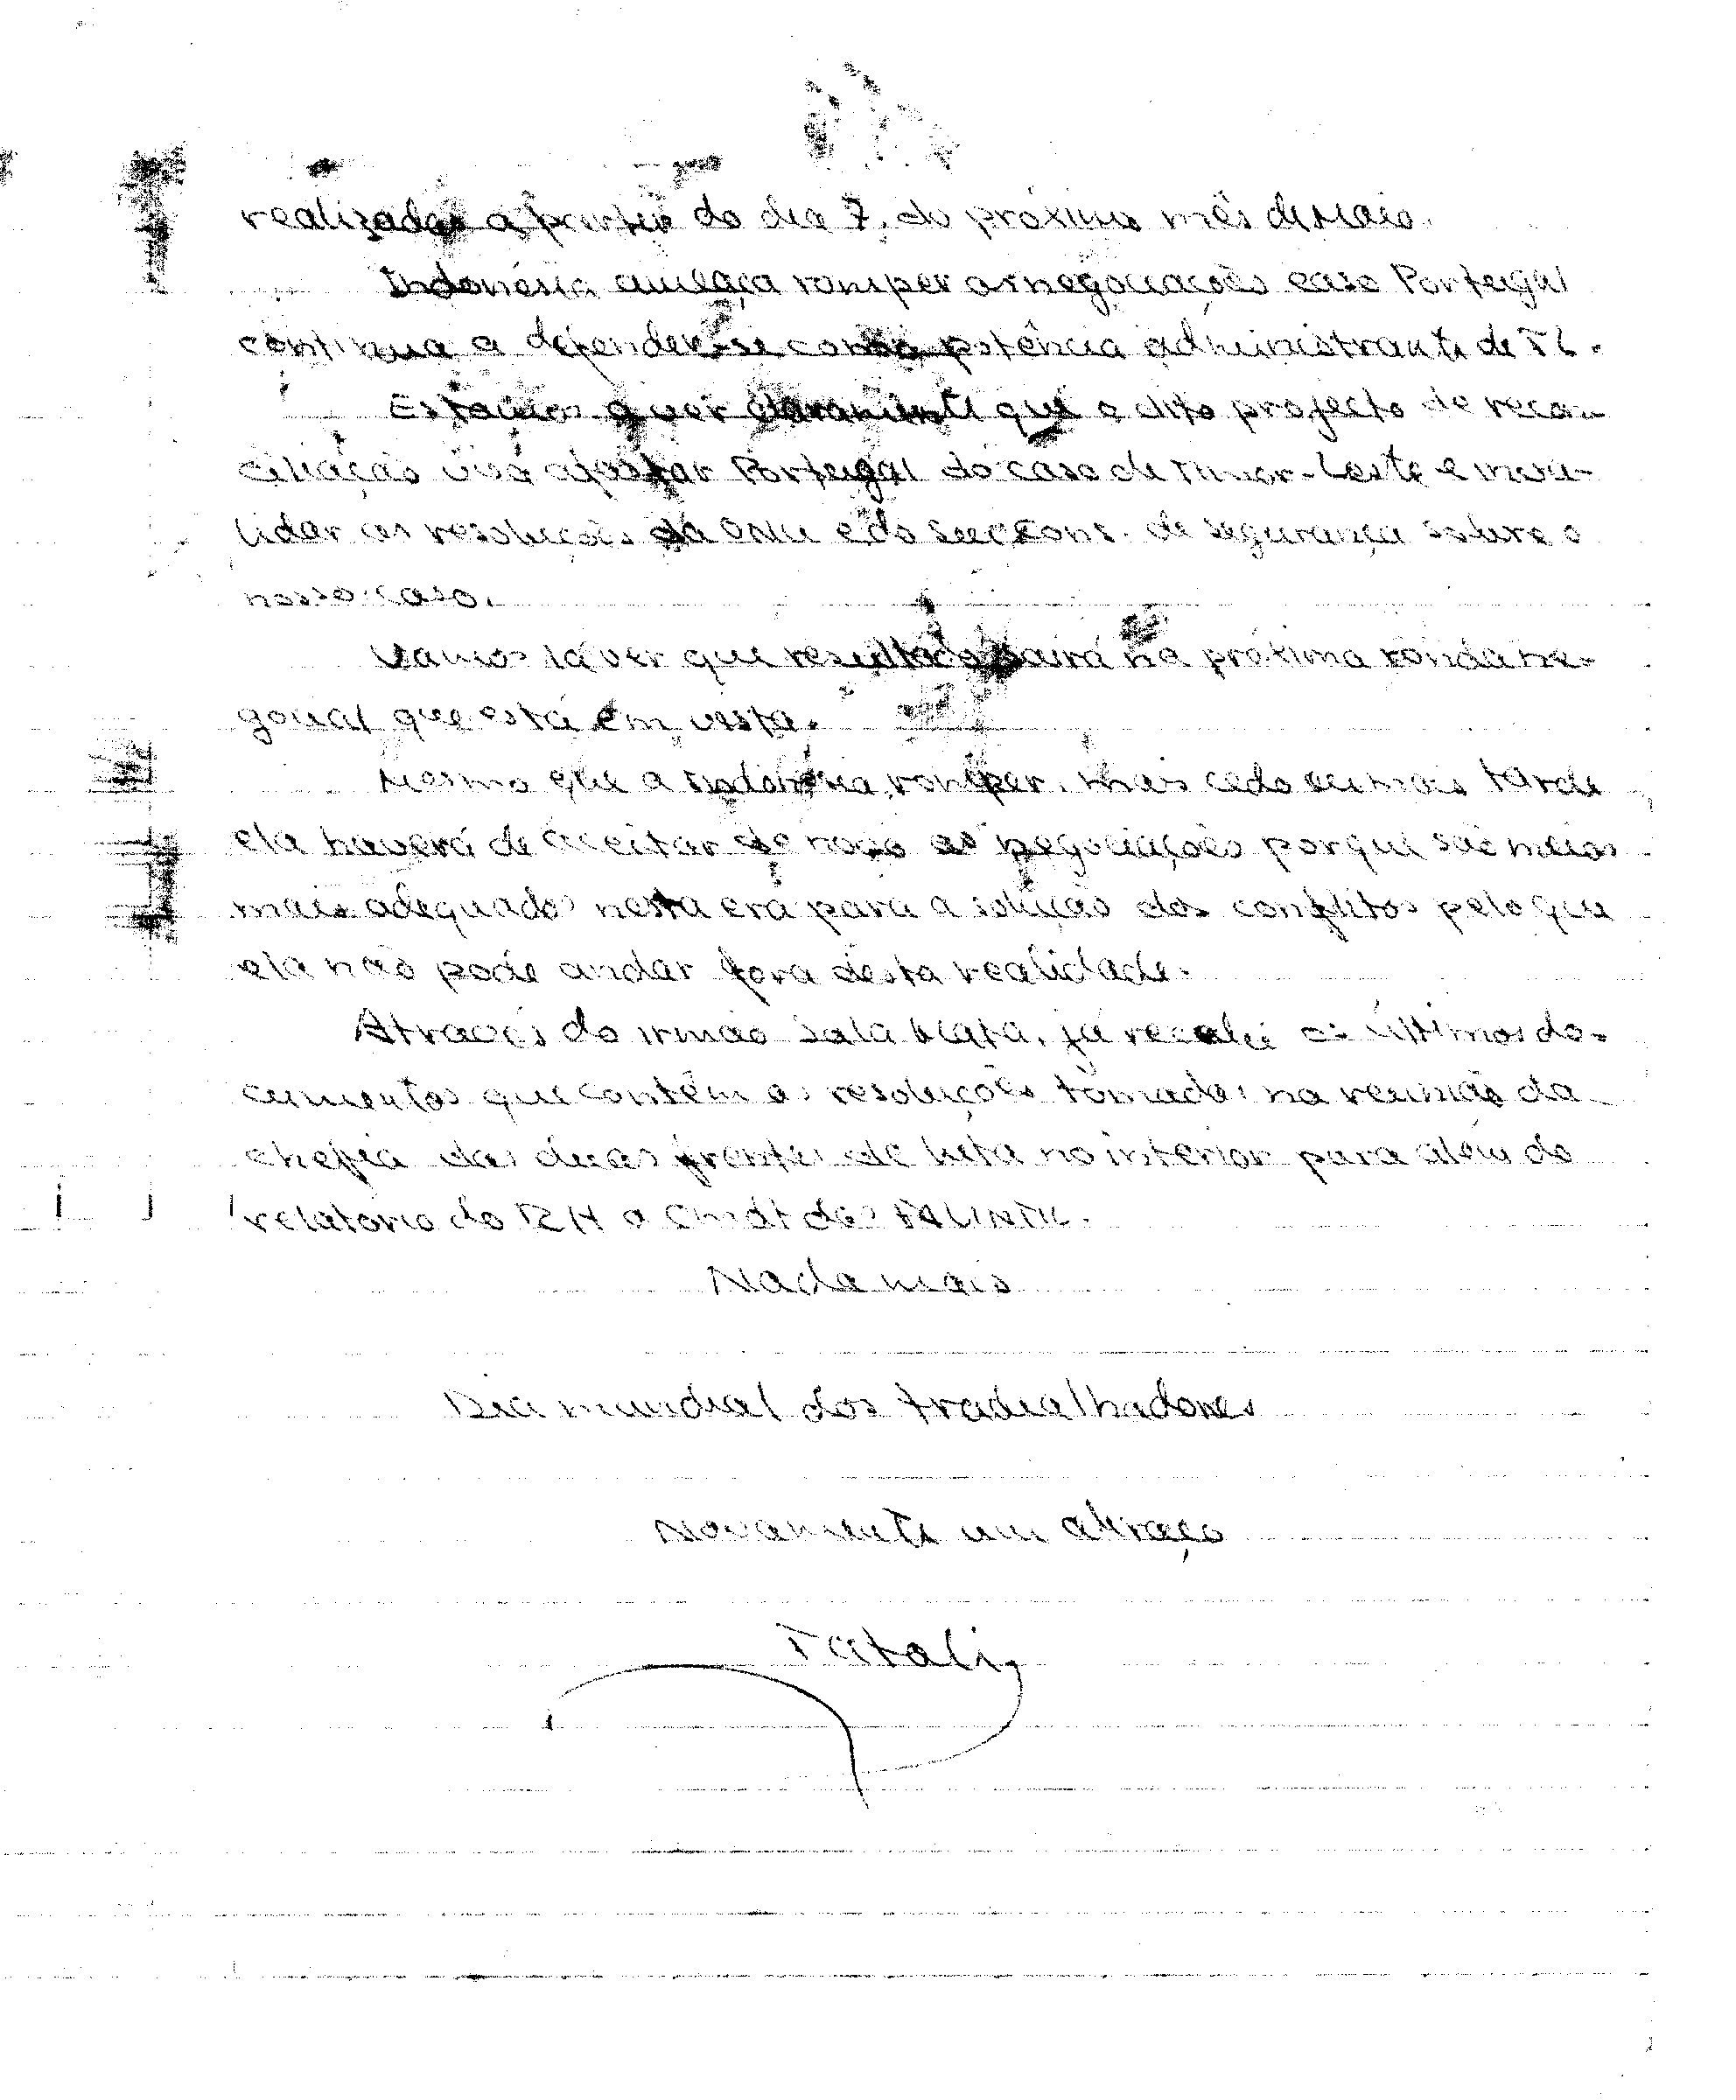 realizadas a partir do dia 7, do próximo mês de Maio.
Indonésia ameaça romper as negociações caso Portugal
continua a defender-se como potência administrante de TL.
Estamos a ver claramente que o dito projecto de recon-
ciliação visa afastar Portugal do caso de Timor-Leste e inva-
lidar as resoluções da ONU e do seu Cons. de segurança sobre o
nosso caso.
Vamos lá ver que resultado sairá na próxima ronda ne-
gocial que está em vista.
Mesmo que a Indonésia romper, mais cedo ou mais tarde
ela haverá de aceitar de novo as negociações porque são meios
mais adequados nesta era para a solução dos conflitos pelo que
ela não pode andar fora desta realidade.
Através do irmão Sala Mata, já recebi os últimos do-
cumentos que contêm as resoluções tomadas na reunião da
chefia das duas frentes de luta no interior para além do
relatório do RH a Cmdt das FALINTIL.
Nada mais
Dia mundial dos trabalhadores
Novamente um abraço